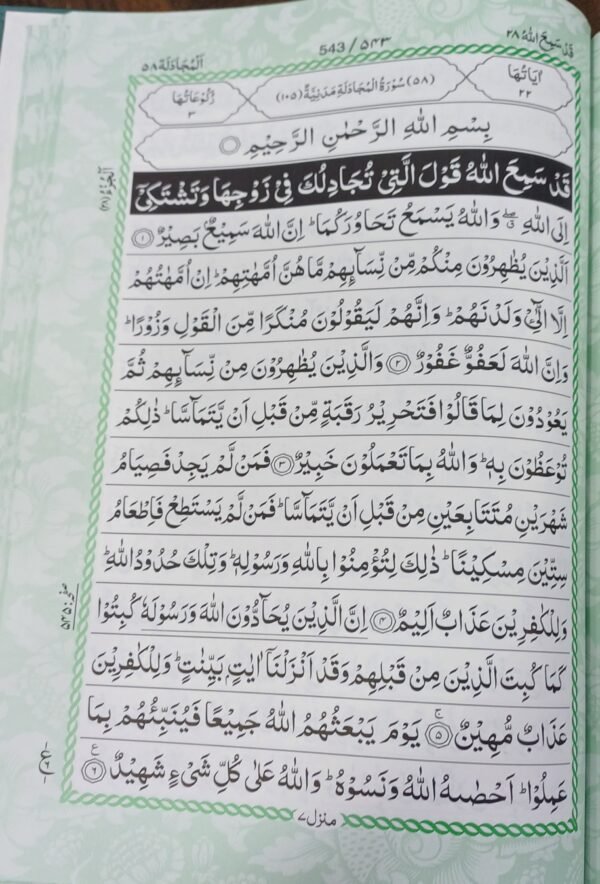 قَدْ سَمِعَ اللّٰهُ ٢٨
543 / ٥٤٣
اَلْمُجَادَلَة ٥٨
اٰيَاتُهَا ٢٢
(٥٨) سُوْرَةُ الْمُجَادَلَةِ مَدَنِيَّةٌ (١٠٥)
رُكُوْعَاتُهَا ٣
بِسْمِ اللّٰهِ الرَّحْمٰنِ الرَّحِيْمِ
اَلْجُزْءُ (٢٨)
قَدْ سَمِعَ اللّٰهُ قَوْلَ الَّتِيْ تُجَادِلُكَ فِيْ زَوْجِهَا وَتَشْتَكِيْٓ
اِلَى اللّٰهِ ۖ وَاللّٰهُ يَسْمَعُ تَحَاوُرَكُمَا ؕ اِنَّ اللّٰهَ سَمِيْعٌۢ بَصِيْرٌ ﴿١﴾
اَلَّذِيْنَ يُظٰهِرُوْنَ مِنْكُمْ مِّنْ نِّسَآىِٕهِمْ مَّا هُنَّ اُمَّهٰتِهِمْ ؕ اِنْ اُمَّهٰتُهُمْ
اِلَّا الّٰٓـِٔيْ وَلَدْنَهُمْ ؕ وَاِنَّهُمْ لَيَقُوْلُوْنَ مُنْكَرًا مِّنَ الْقَوْلِ وَزُوْرًا ؕ
وَاِنَّ اللّٰهَ لَعَفُوٌّ غَفُوْرٌ ﴿٢﴾ وَالَّذِيْنَ يُظٰهِرُوْنَ مِنْ نِّسَآىِٕهِمْ ثُمَّ
يَعُوْدُوْنَ لِمَا قَالُوْا فَتَحْرِيْرُ رَقَبَةٍ مِّنْ قَبْلِ اَنْ يَّتَمَآسَّا ؕ ذٰلِكُمْ
تُوْعَظُوْنَ بِهٖ ؕ وَاللّٰهُ بِمَا تَعْمَلُوْنَ خَبِيْرٌ ﴿٣﴾ فَمَنْ لَّمْ يَجِدْ فَصِيَامُ
شَهْرَيْنِ مُتَتَابِعَيْنِ مِنْ قَبْلِ اَنْ يَّتَمَآسَّا ؕ فَمَنْ لَّمْ يَسْتَطِعْ فَاِطْعَامُ
سِتِّيْنَ مِسْكِيْنًا ؕ ذٰلِكَ لِتُؤْمِنُوْا بِاللّٰهِ وَرَسُوْلِهٖ ؕ وَتِلْكَ حُدُوْدُ اللّٰهِ ؕ
وَلِلْكٰفِرِيْنَ عَذَابٌ اَلِيْمٌ ﴿٤﴾ اِنَّ الَّذِيْنَ يُحَآدُّوْنَ اللّٰهَ وَرَسُوْلَهٗ كُبِتُوْا
كَمَا كُبِتَ الَّذِيْنَ مِنْ قَبْلِهِمْ وَقَدْ اَنْزَلْنَاۤ اٰيٰتٍۭ بَيِّنٰتٍ ؕ وَلِلْكٰفِرِيْنَ
عَذَابٌ مُّهِيْنٌ ﴿٥﴾ۚ يَوْمَ يَبْعَثُهُمُ اللّٰهُ جَمِيْعًا فَيُنَبِّئُهُمْ بِمَا
عَمِلُوْا ؕ اَحْصٰىهُ اللّٰهُ وَنَسُوْهُ ؕ وَاللّٰهُ عَلٰى كُلِّ شَيْءٍ شَهِيْدٌ ﴿٦﴾ ع
منزل ٧